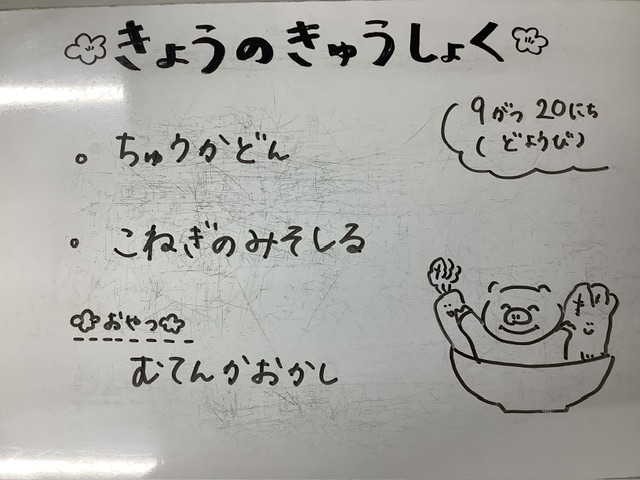 きょうのきゅうしょく
9がつ 20にち
(どようび)
。ちゅうかどん
。こねぎのみそしる
おやつ
むてんかおかし